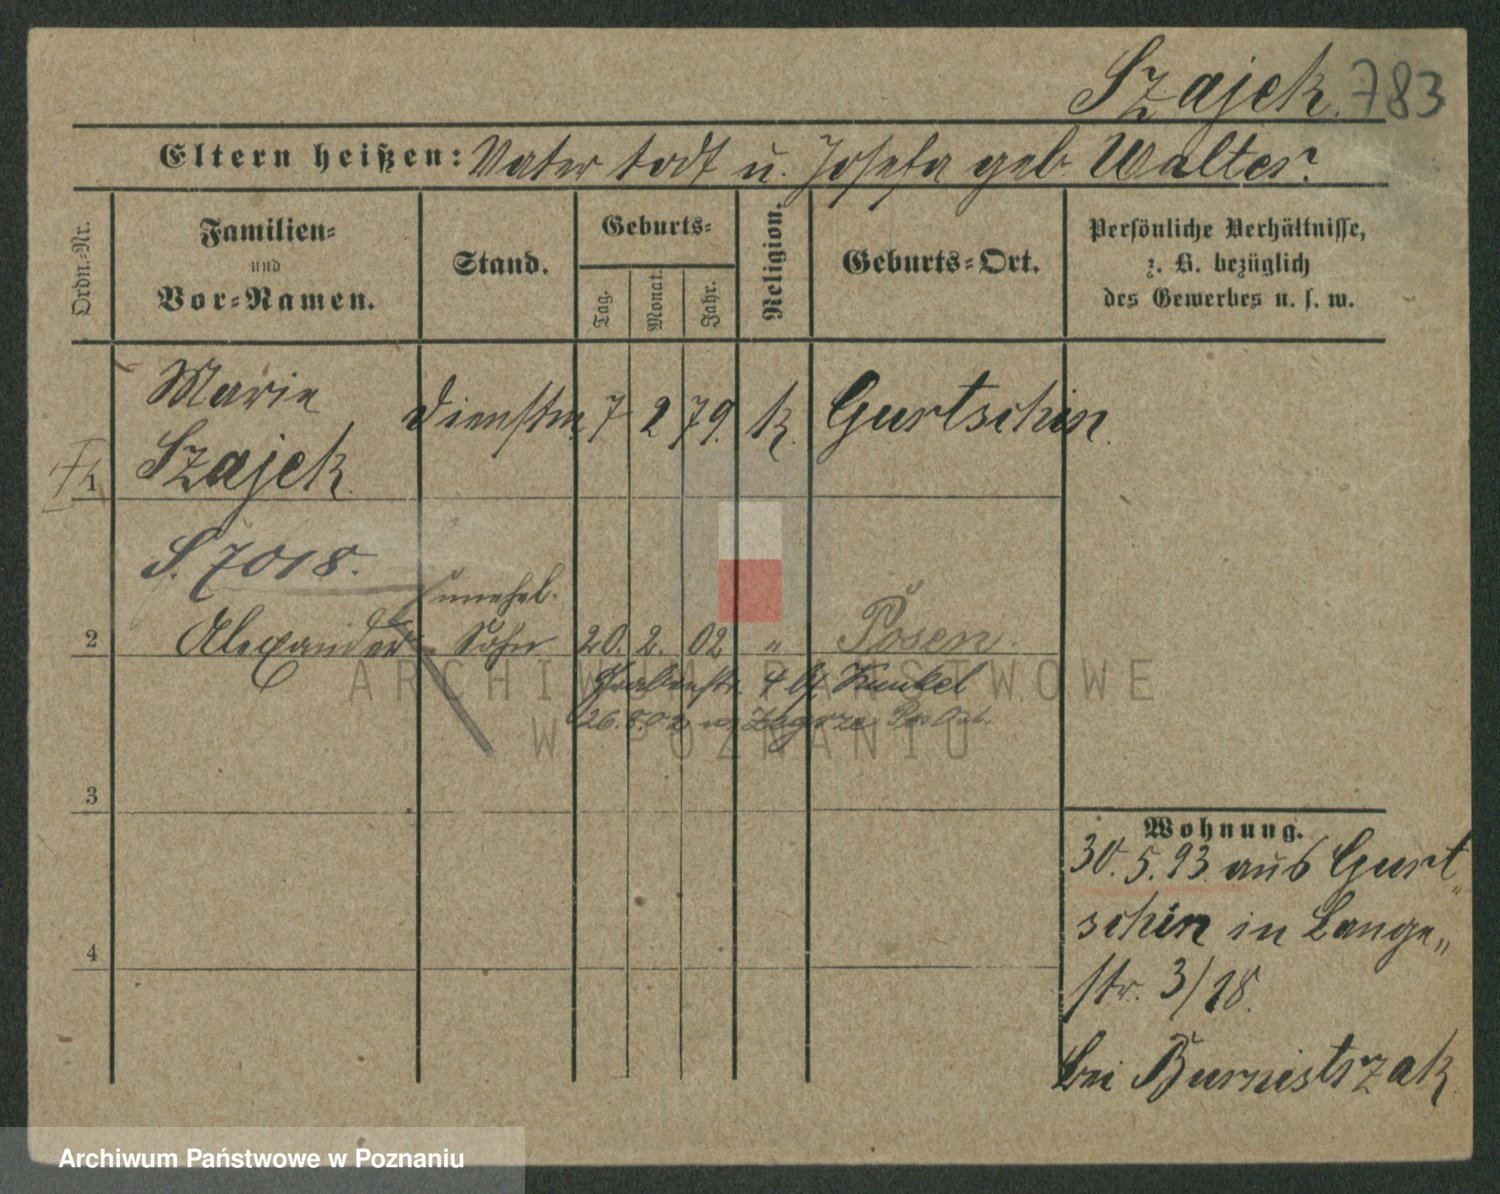 Szajek. 783
Eltern heißen: Vater todt u. Josefa geb. Walter.
Ordn.-Nr.
Familien- und Vor-Namen.
Stand.
Geburts-
Tag. Monat. Jahr.
Religion.
Geburts-Ort.
Persönliche Verhältnisse,
z. B. bezüglich
des Gewerbes u. s. w.
Marie Dienstm. 7 2 79. k. Gurtschin.
1 Szajek.
S. 7018.
unehel.
2 Alexander Sohn 20. 2. 02 " Posen.
Grabenstr. 4 Kunkel
26.8.02 Zegrze Pos Ost.
3
4
Wohnung.
30.5.93. aus Gurt
schin in Lange„
str. 3/18.
bei Burnistrzak
ARCHIWUM PAŃSTWOWE
W POZNANIU
Archiwum Państwowe w Poznaniu